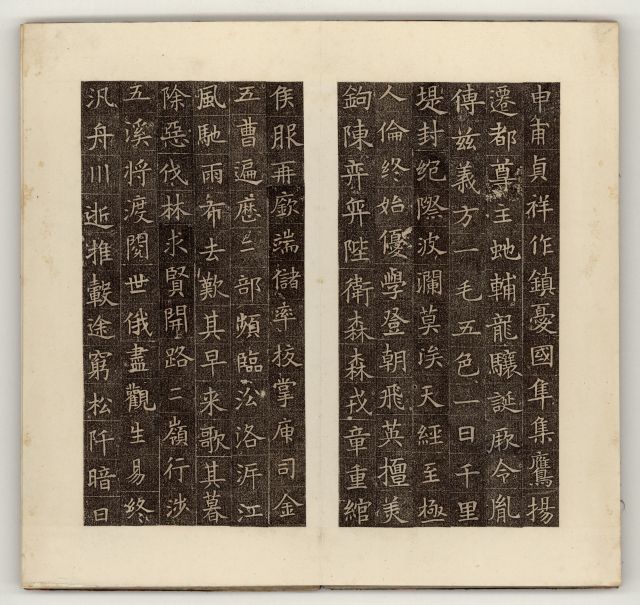 申甫貞祥作鎮憂國隼集鷹揚
遷都尊王虵輔龍驤誕厥令胤
傳茲義方一毛五色一日千里
堤封絕際波瀾莫涘天經至極
人倫終始優學登朝飛英擅美
鉤陳弈弈陛衛森森戎章重綰
侯服再廞端儲率校掌庫司金
五曹遍歷三部頻臨沿洛泝江
風馳雨布去歎其早来歌其暮
除惡伐林求賢開路二嶺行涉
五溪將渡閱世俄盡觀生易終
汎舟川逝推轂途窮松阡暗日